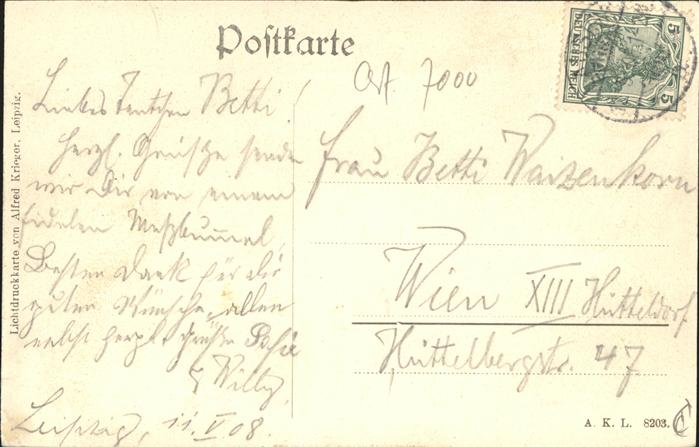 Postkarte
Öst. 7000
Liebes Tantchen Betti!
Herzl. Grüße senden
wir Dir von einem
fidelen Meßbummel.
Besten Dank für die
guten Wünsche, allen
nebst herzl. Grüße Sofie
& Willy.
Leipzig, 11. V 08.
Frau Betti Waizenkorn
Wien XIII Hütteldorf
Hüttelbergstr. 47
DEUTSCHES REICH
5 5
Lichtdruckkarte von Alfred Krieger, Leipzig.
A. K. L. 8203.